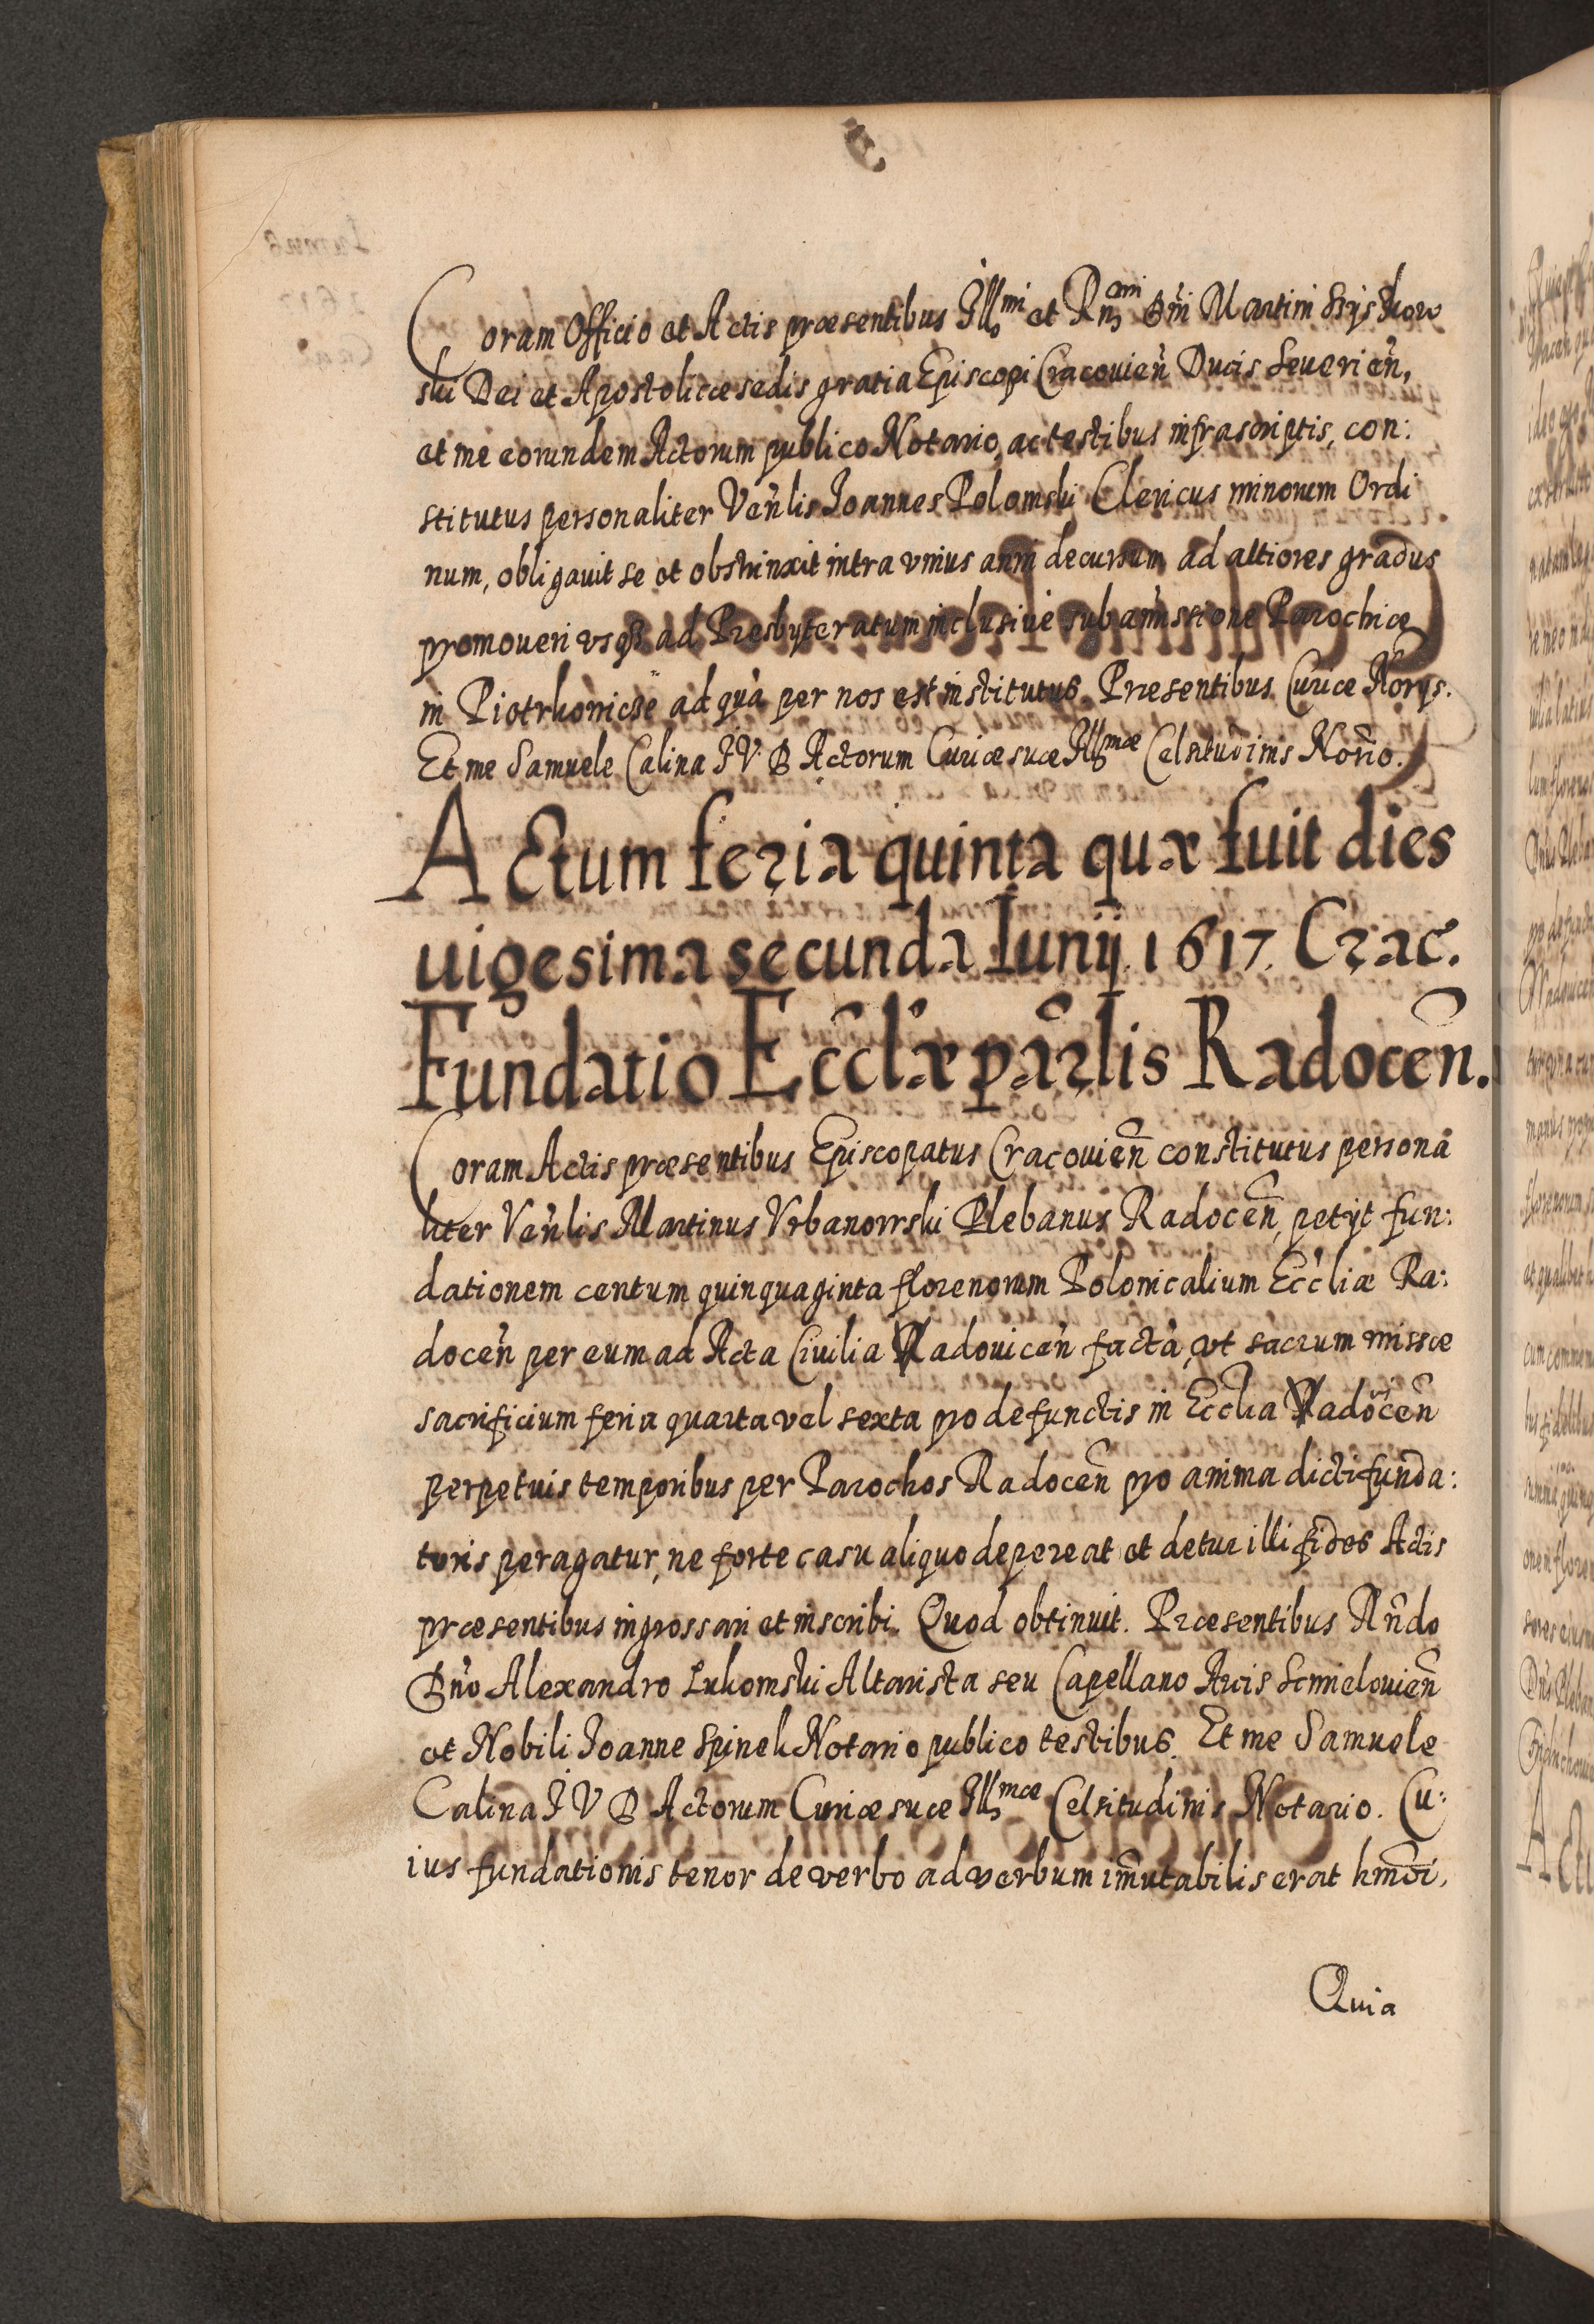 Coram Officio et Actis præsentibus Illmi et Rmi Dñi Martini Szyszkow
ski Dei et Apostolicæ sedis gratia Episcopi Cracouieñ Ducis Seuerieñ,
et me eorundem Actorum publico Notario, ac testibus infrascriptis, con:
stitutus personaliter Veñlis Joannes Polomski Clericus minorum Ordi
num, obligauit se et obstrinxit intra vnius anni decursum ad altiores gradus
promoueri vsq ad Presbyteratum inclusiue sub amissione Parochiæ
in ad quã per nos est institutus. Præsentibus Curiæ Norys.
Et me Samuele Calina I V. D Actorum Curiæ suæ Illmæ Celsitudinis Norio.
Actum feria quinta quæ fuit dies
uigesima secunda Iunij. 1617. Crac.
Fundatio Eccl̃æ parl̃is Radoceñ.
Coram Actis præsentibus Episcopatus Cracouieñ constitutus persona
liter Veñlis Martinus Vrbanowski Plebanus Radoceñ, petijt fun:
dationem centum quinquaginta florenorum Polonicalium Eccliæ Ra:
doceñ per eum ad Acta Ciuilia Vadouiceñ factã, vt sacrum missæ
sacrificium feria quarta vel sexta pro defunctis in Ecclia Radoceñ
perpetuis temporibus per Parochos Radoceñ pro anima dicti funda:
toris peragatur, ne forte casu aliquo depereat et detur illi fides Actis
præsentibus ingrossari et inscribi. Quod obtinuit. Præsentibus Rñdo
Dño Alexandro Lukomski Altarista seu Capellano Arcis
et Nobili Joanne Spinek Notario publico testibus. Et me Samuele
Calina I V D Actorum Curiæ suæ Illmæ Celsitudinis Notario. Cu:
ius fundationis tenor de verbo ad verbum im̃utabilis erat hmõi,
Quia